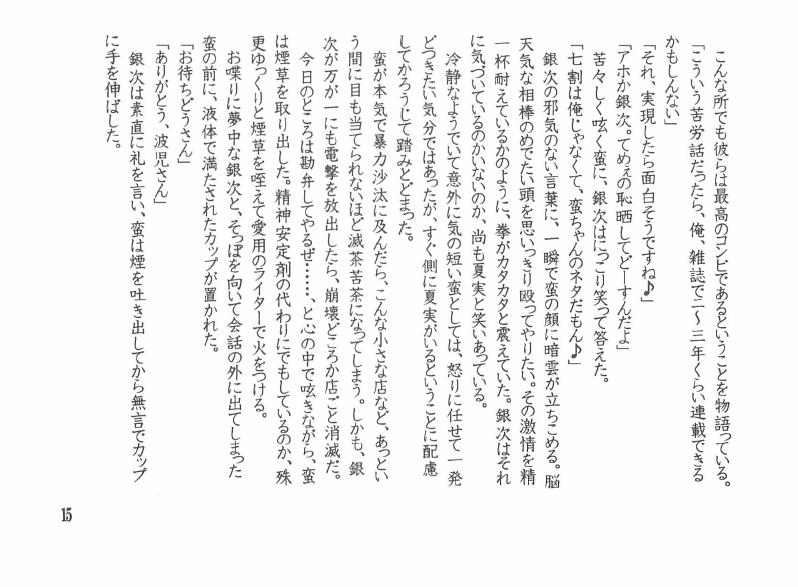 こんな所でも彼らは最高のコンビであるということを物語っている。
「こういう苦労話だったら、俺、雑誌で二〜三年くらい連載できる
かもしんない」
「それ、実現したら面白そうですね♪」
「アホか銀次。てめぇの恥晒してどーすんだよ」
苦々しく呟く蛮に、銀次はにっこり笑って答えた。
「七割は俺じゃなくて、蛮ちゃんのネタだもん♪」
銀次の邪気のない言葉に、一瞬で蛮の顔に暗雲が立ちこめる。脳
天気な相棒のめでたい頭を思いっきり殴ってやりたい。その激情を精
一杯耐えているかのように、拳がカタカタと震えていた。銀次はそれ
に気づいているのかいないのか、尚も夏実と笑いあっている。
冷静なようでいて意外に気の短い蛮としては、怒りに任せて一発
どつきたい気分ではあったが、すぐ側に夏実がいるということに配慮
してかろうじて踏みとどまった。
蛮が本気で暴力沙汰に及んだら、こんな小さな店など、あっとい
う間に目も当てられないほど滅茶苦茶になってしまう。しかも、銀
次が万が一にも電撃を放出したら、崩壊どころか店ごと消滅だ。
今日のところは勘弁してやるぜ……、と心の中で呟きながら、蛮
は煙草を取り出した。精神安定剤の代わりにでもしているのか、殊
更ゆっくりと煙草を咥えて愛用のライターで火をつける。
お喋りに夢中な銀次と、そっぽを向いて会話の外に出てしまった
蛮の前に、液体で満たされたカップが置かれた。
「お待ちどうさん」
「ありがとう、波児さん」
銀次は素直に礼を言い、蛮は煙を吐き出してから無言でカップ
に手を伸ばした。
15